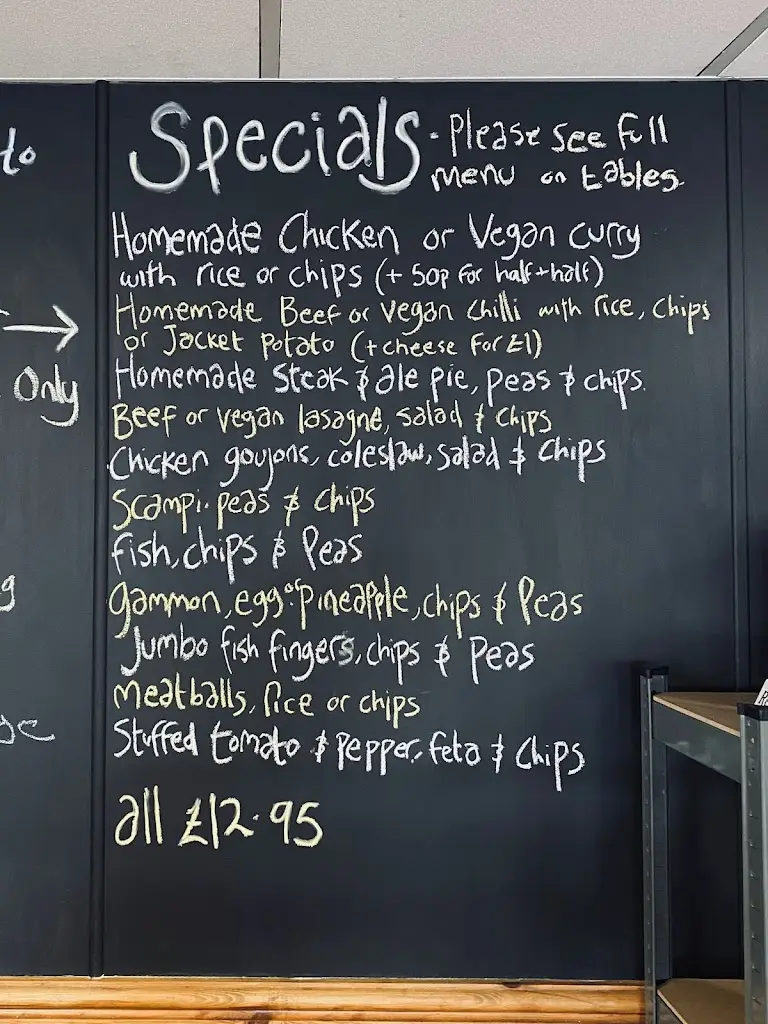 Specials - Please see full
menu on tables
Homemade Chicken or Vegan curry
with rice or chips (+ 50p for half + half)
Homemade Beef or vegan chilli with rice, chips
or Jacket Potato (+ cheese for £1)
Homemade Steak & ale pie, peas & chips.
Beef or vegan lasagne, salad & chips
Chicken goujons, coleslaw, salad & chips
Scampi. peas & chips
fish, chips & Peas
gammon, egg or pineapple, chips & Peas
Jumbo fish fingers, chips & Peas
meatballs, Rice or chips
Stuffed tomato & Pepper, feta & chips
all £12.95
to
Only